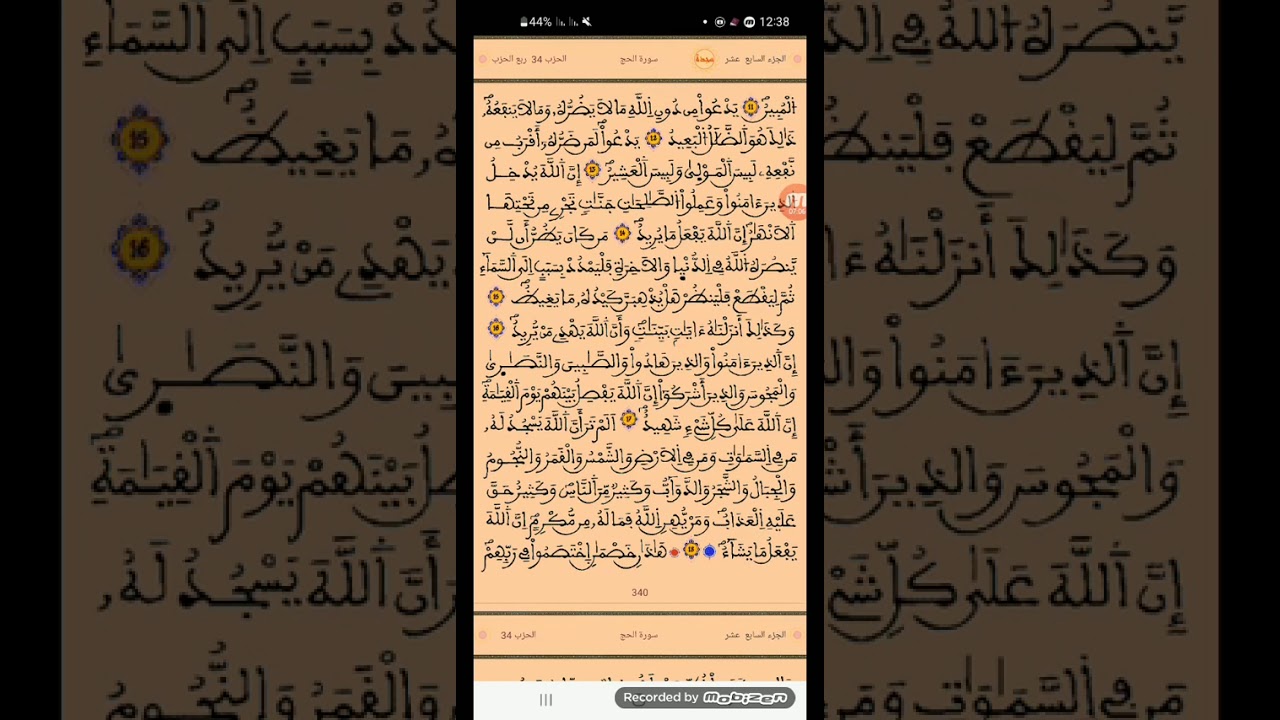 44% 12:38
الجزء السابع عشر صفحة سورة الحج الحزب 34 ربع الحزب
اَ۬لْمُبِينُۖ 11 يَدْعُواْ مِن دُونِ اِ۬للَّهِ مَا لَا يَضُرُّهُۥ وَمَا لَا يَنفَعُهُۥۖ
ذَٰلِكَ هُوَ اَ۬لضَّلَٰلُ اُ۬لْبَعِيدُۖ 12 يَدْعُواْ لَمَن ضَرُّهُۥٓ أَقْرَبُ مِن
نَّفْعِهِۦ لَبِيسَ اَ۬لْمَوْلَىٰ وَلَبِيسَ اَ۬لْعَشِيرُۖ 13 إِنَّ اَ۬للَّهَ يُدْخِلُ
اُ۬لذِينَ ءَامَنُواْ وَعَمِلُواْ اُ۬لصَّٰلِحَٰتِ جَنَّٰتٖ تَجْرِے مِن تَحْتِهَا
اَ۬لَانْهَٰرُۖ إِنَّ اَ۬للَّهَ يَفْعَلُ مَا يُرِيدُۖ 14 مَن كَانَ يَظُنُّ أَن لَّنْ
يَّنصُرَهُ اُ۬للَّهُ فِے اِ۬لدُّنْي۪ا وَالَاخِرَةِ فَلْيَمْدُدْ بِسَبَبٍ اِلَى اَ۬لسَّمَآءِ
ثُمَّ لِيَقْطَعْ فَلْيَنظُرْ هَلْ يُذْهِبَنَّ كَيْدُهُۥ مَا يَغِيظُۖ 15
وَكَذَٰلِكَ أَنزَلْنَٰهُ ءَايَٰتِۢ بَيِّنَٰتٖ وَأَنَّ اَ۬للَّهَ يَهْدِے مَنْ يُّرِيدُۖ 16
إِنَّ اَ۬لذِينَ ءَامَنُواْ وَالذِينَ هَادُواْ وَالصَّٰبِينَ وَالنَّصَٰر۪ىٰ
وَالْمَجُوسَ وَالذِينَ أَشْرَكُوٓاْ إِنَّ اَ۬للَّهَ يَفْصِلُ بَيْنَهُمْ يَوْمَ اَ۬لْقِيَٰمَةِۖ
إِنَّ اَ۬للَّهَ عَلَىٰ كُلِّ شَےْءٖ شَهِيدٌۖ 17 اَلَمْ تَرَ أَنَّ اَ۬للَّهَ يَسْجُدُ لَهُۥ
مَن فِے اِ۬لسَّمَٰوَٰتِ وَمَن فِے اِ۬لَارْضِ وَالشَّمْسُ وَالْقَمَرُ وَالنُّجُومُ
وَالْجِبَالُ وَالشَّجَرُ وَالدَّوَآبُّ وَكَثِيرٞ مِّنَ اَ۬لنَّاسِۖ وَكَثِيرٌ حَقَّ
عَلَيْهِ اِ۬لْعَذَابُۖ وَمَنْ يُّهِنِ اِ۬للَّهُ فَمَا لَهُۥ مِن مُّكْرِمٍۖ اِنَّ اَ۬للَّهَ
يَفْعَلُ مَا يَشَآءُۖ 18 هَٰذَٰنِ خَصْمَٰنِ اِ۪خْتَصَمُواْ فِے رَبِّهِمْۖ
340
الجزء السابع عشر سورة الحج الحزب 34
Recorded by mobizen